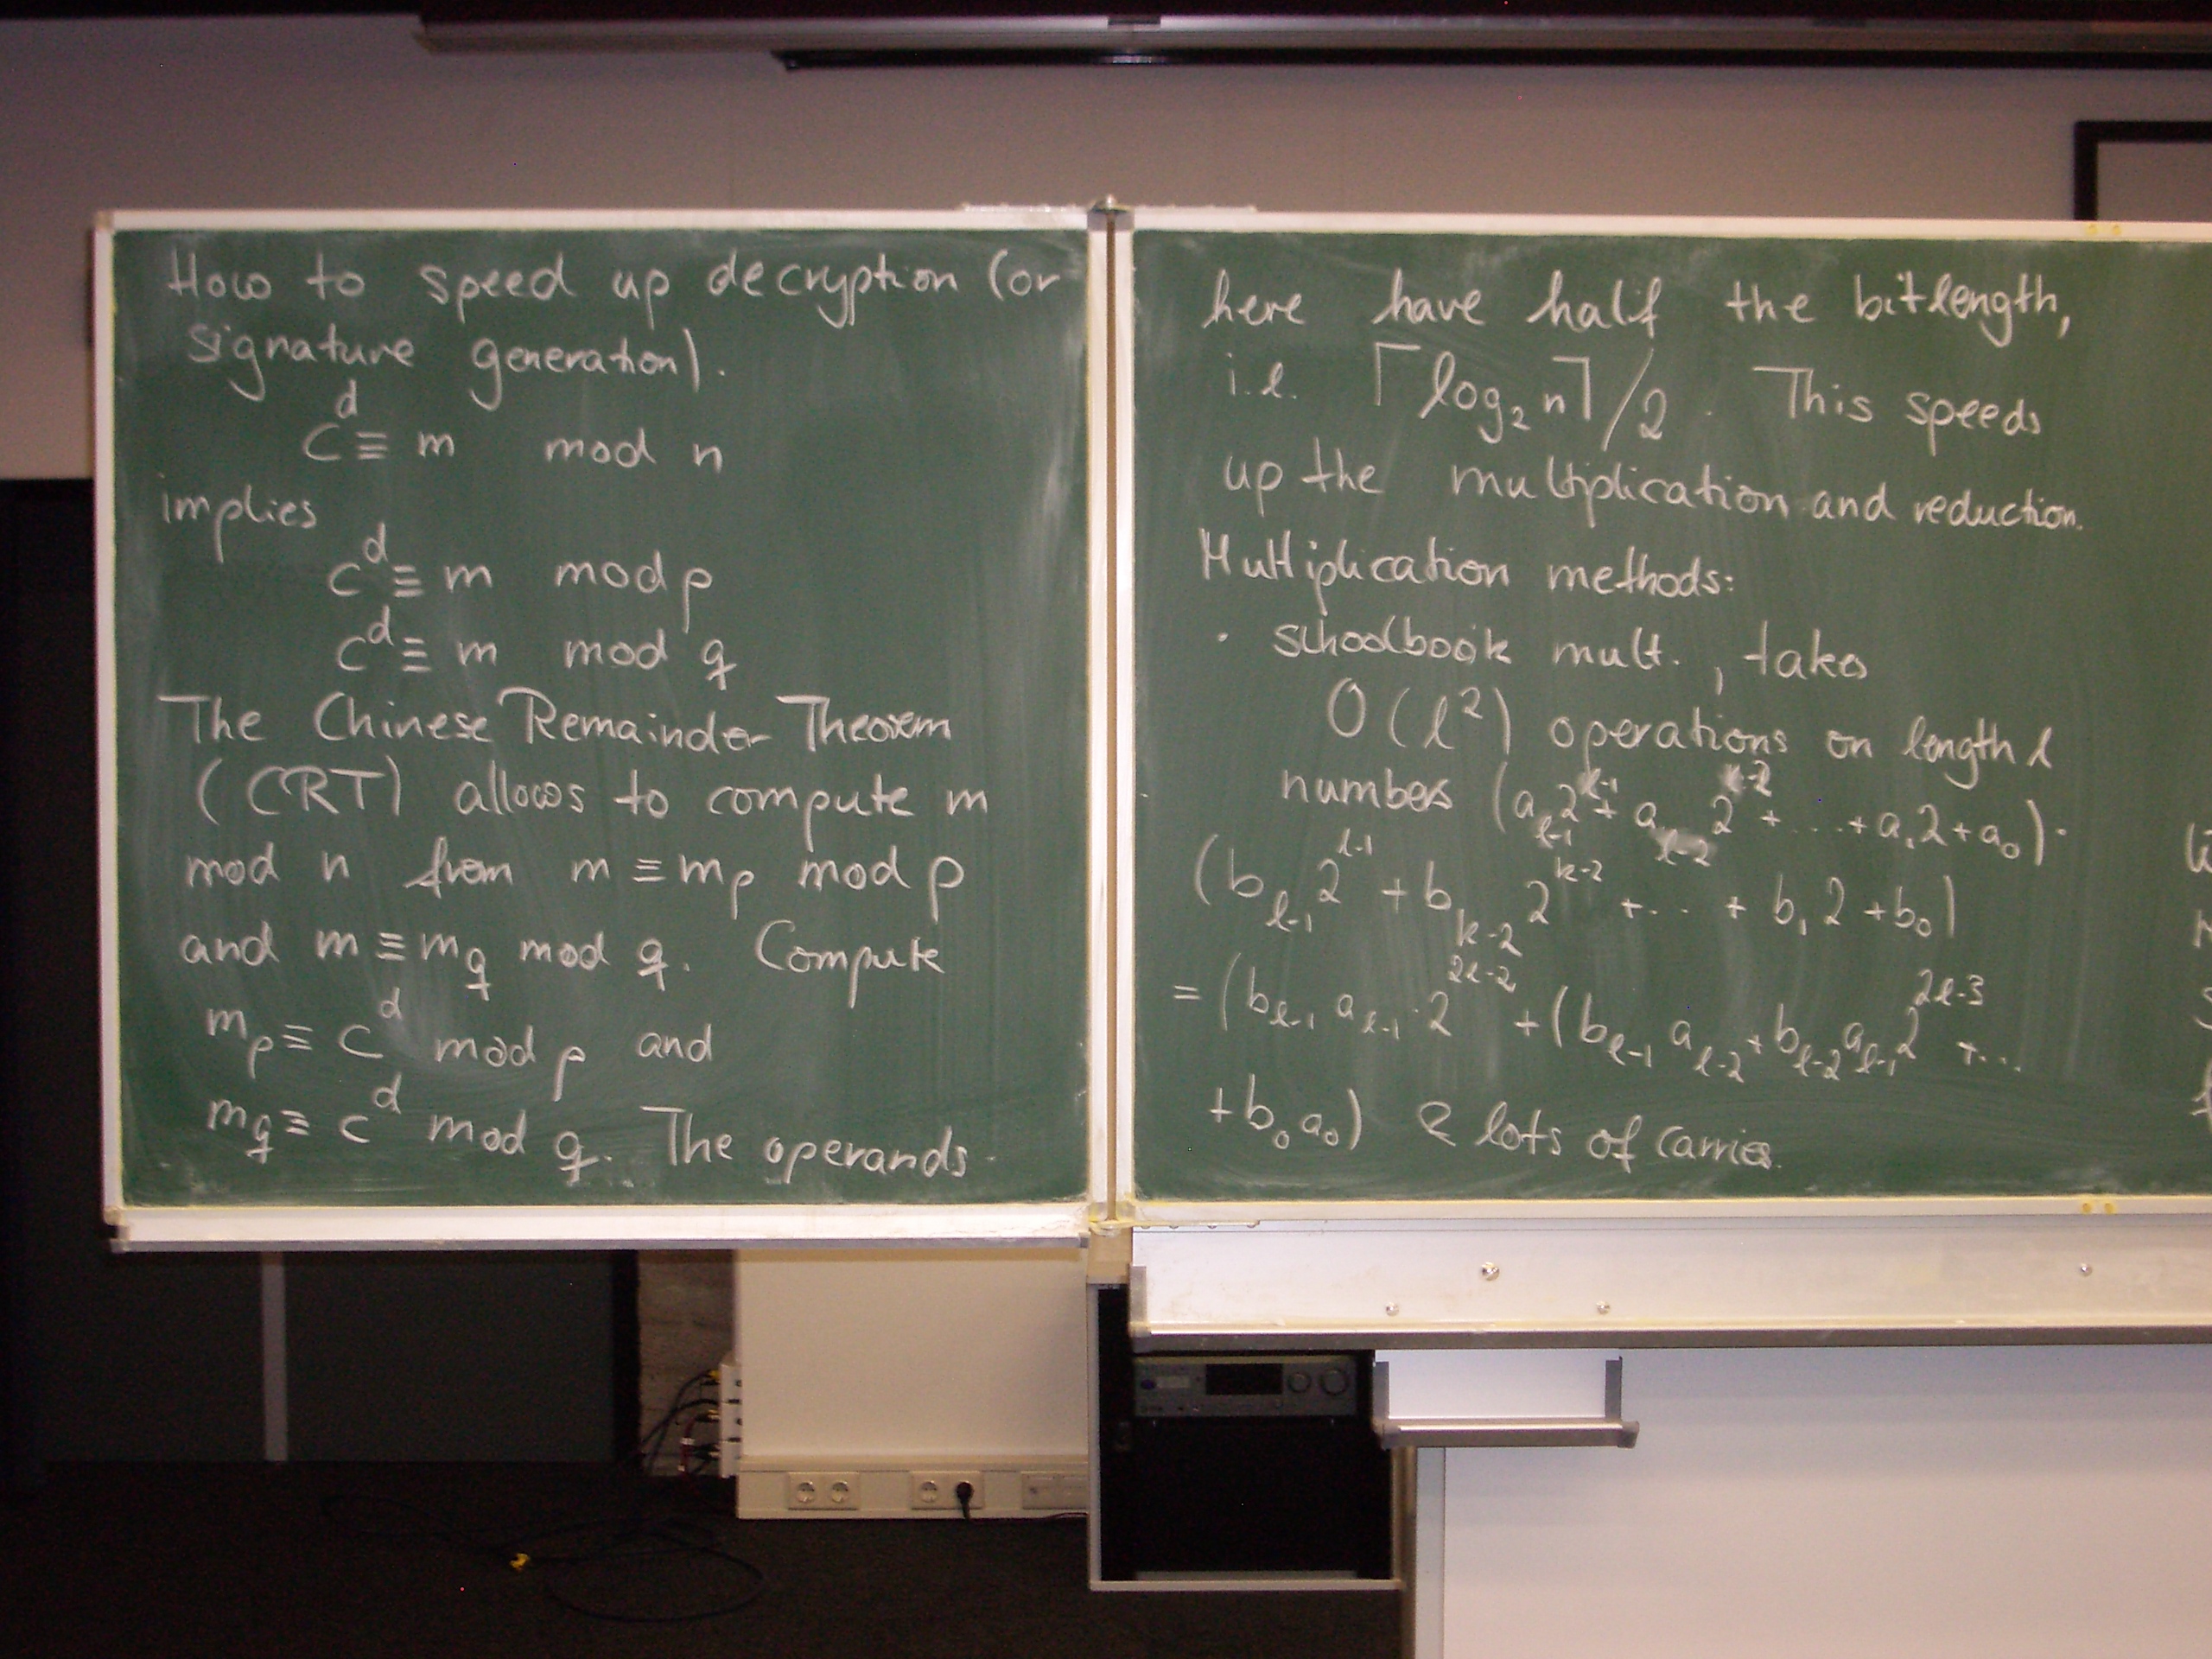 How to speed up decryption (or
signature generation).
c^d ≡ m mod n
implies
c^d ≡ m mod p
c^d ≡ m mod q
The Chinese Remainder Theorem
(CRT) allows to compute m
mod n from m ≡ m_p mod p
and m ≡ m_q mod q. Compute
m_p ≡ c^d mod p and
m_q ≡ c^d mod q. The operands
here have half the bitlength,
i.e. ⌈log_2 n⌉/2. This speeds
up the multiplication and reduction.
Multiplication methods:
· schoolbook mult., takes
O(l^2) operations on length l
numbers (a_{l-1} 2^{k-1} + a_{l-2} 2^{k-2} + ... + a_1 2 + a_0)·
(b_{l-1} 2^{l-1} + b_{k-2} 2^{k-2} + ... + b_1 2 + b_0)
= (b_{l-1} a_{l-1} · 2^{2l-2} + (b_{l-1} a_{l-2} + b_{l-2} a_{l-1} 2^{2l-3} + ...
+ b_0 a_0) & lots of carries.